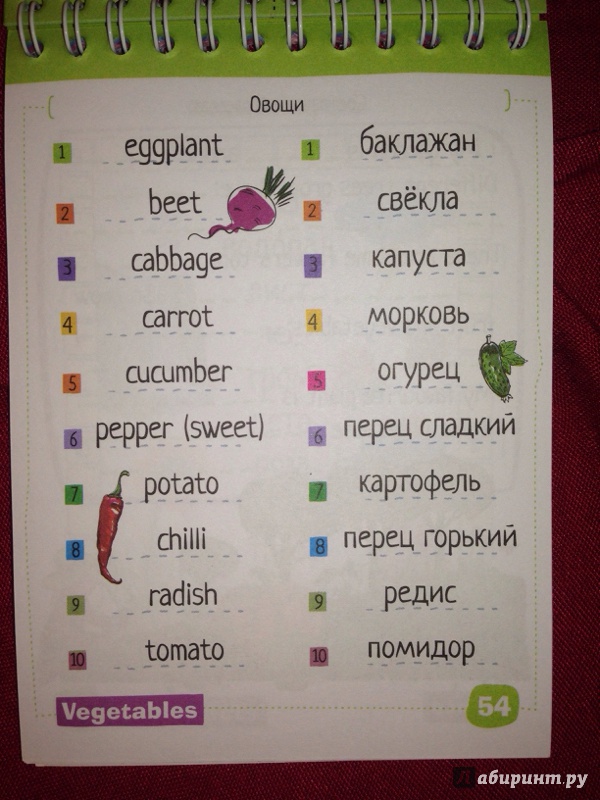 Овощи
1 eggplant 1 баклажан
2 beet 2 свёкла
3 cabbage 3 капуста
4 carrot 4 морковь
5 cucumber 5 огурец
6 pepper (sweet) 6 перец сладкий
7 potato 7 картофель
8 chilli 8 перец горький
9 radish 9 редис
10 tomato 10 помидор
Vegetables 54
Лабиринт.ру